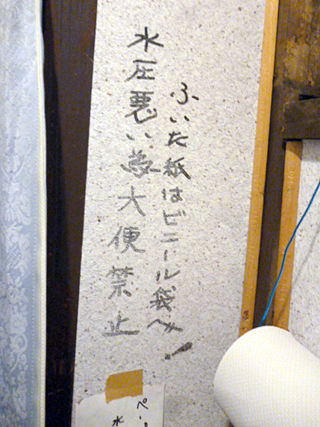 ふいた紙はビニール袋へ!
水圧悪い為大便禁止
ペー
水